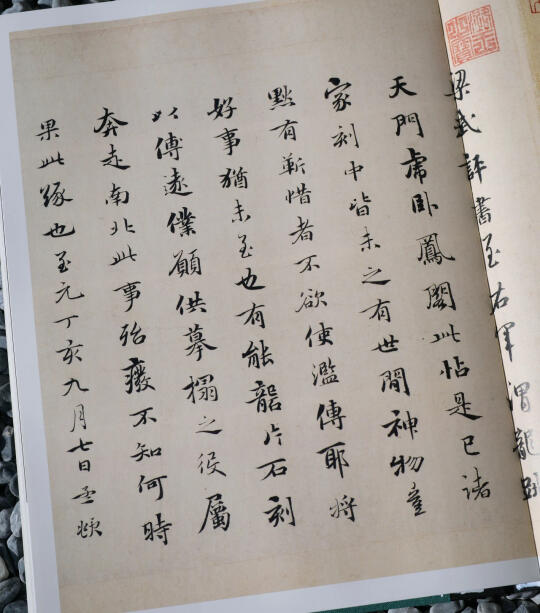 梁武評書至右軍謂龍跳
天門虎卧鳳閣此帖是已諸
家刻中皆未之有世間神物豈
點有靳惜者不欲使濫傳耶將
好事猶未至也有能龍片石刻
以傳遠僕願供摹搨之役屬
奔走南北此事殆廢不知何時
果此緣也至元丁亥九月七日孟頫